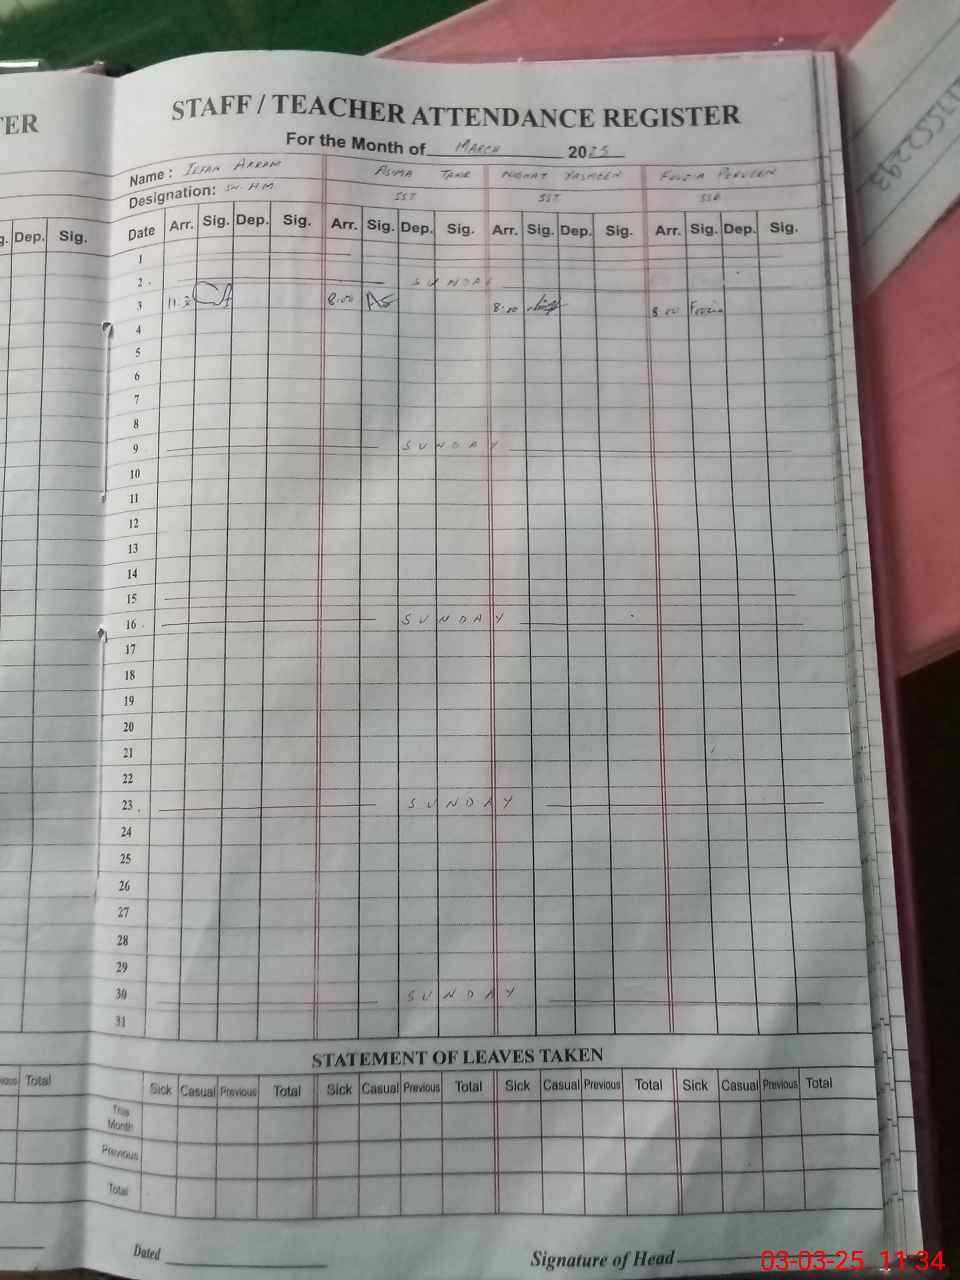 TER
STAFF / TEACHER ATTENDANCE REGISTER
For the Month of MARCH 2025
Name : IRFAN AKRAM ASIMA TAHIR NUGHAT YASMEEN FOUZIA PERVEEN
Designation: SST SST SSE
g. Dep. Sig.
Date Arr. Sig. Dep. Sig. Arr. Sig. Dep. Sig. Arr. Sig. Dep. Sig. Arr. Sig. Dep. Sig.
1
2 SUNDAY
3 8:00 8:00 8:00 Fouzia
4
5
6
7
8
9 SUNDAY
10
11
12
13
14
15
16 SUNDAY
17
18
19
20
21
22
23 SUNDAY
24
25
26
27
28
29
30 SUNDAY
31
STATEMENT OF LEAVES TAKEN
vious Total
Sick Casual Previous Total Sick Casual Previous Total Sick Casual Previous Total Sick Casual Previous Total
This Month
Previous
Total
Dated
Signature of Head
03-03-25 11:34